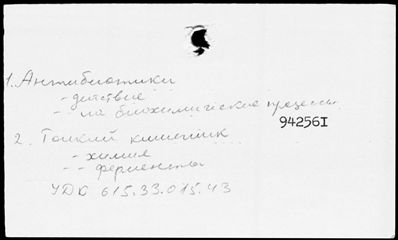 1. Антибиотики
- действие
- - на биохимические процессы
94256I
2. Тонкий кишечник
- химия
- - ферменты
УДК 615.33.015.43